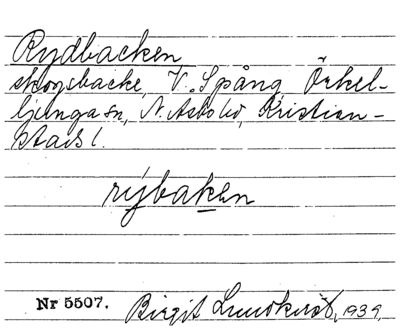 Rydbacken
skogsbacke, V. Spång, Örkel-
ljunga sn, N. Åsbo hd, Kristian-
stads l.
rýbaken
Nr 5507. Birgit Lundkvist, 1939.